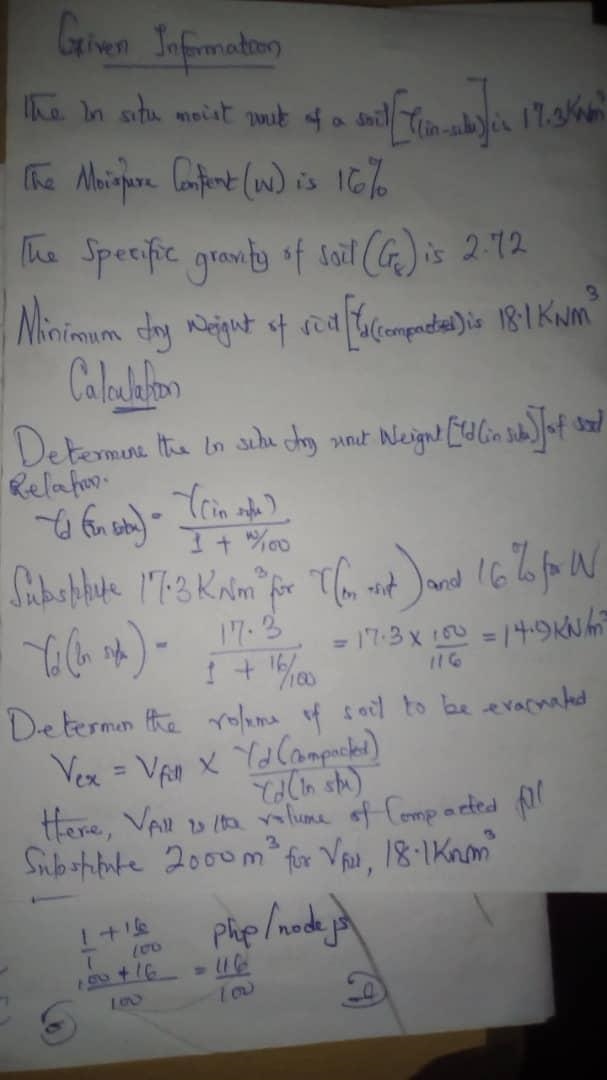 Given Information
The In situ moist unit of a soil [γ(in-situ)] is 17.3KN/m³
The Moisture Content (W) is 16%
The Specific gravity of soil (Gs) is 2.72
Minimum dry Weight of soil [γd(compacted) is 18.1KNm³
Calculation
Determine the In situ dry unit Weight [γd(in situ)] of soil
Relation.
γd (in situ) = γ(in situ) / 1 + w/100
Substitute 17.3KNm³ for γ(in sit) and 16% for W
γd(in situ) = 17.3 / 1 + 16/100 = 17.3 x 100/116 = 14.9KN/m³
Determin the volume of soil to be evacuated
Vex = Vfill x γd(compacted) / γd(In situ)
Here, Vfill is the volume of Compacted fill
Substitute 2000m³ for Vfill, 18.1Knm³
1/1 + 16/100 php/nodejs
100+16/100 = 116/100